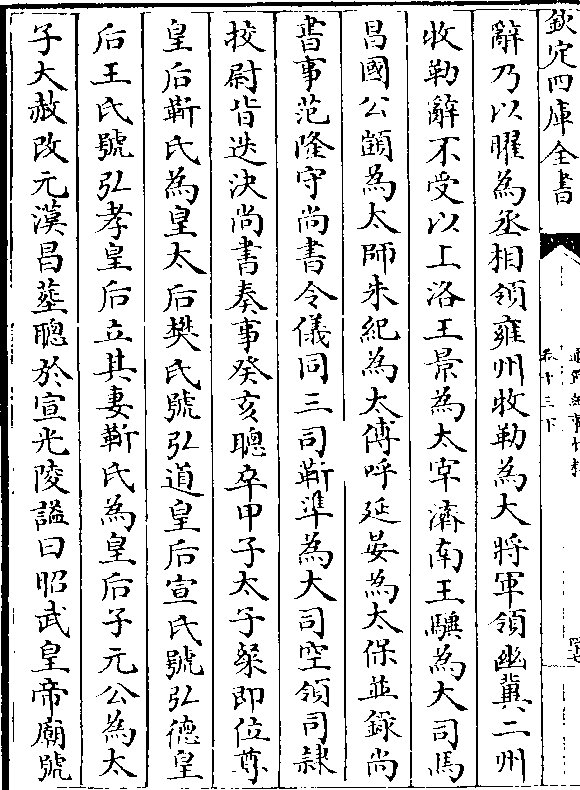 欽定四庫全書
通鑑紀事本末
卷十三下
辭乃以曜為丞相領雍州牧勒為大將軍領幽冀二州
牧勒辭不受以上洛王景為太宰濟南王驥為大司馬
昌國公顗為太師朱紀為太傅呼延晏為太保並錄尚
書事范隆守尚書令儀同三司靳準為大司空領司隸
挍尉皆迭決尚書奏事癸亥聰卒甲子太子粲即位尊
皇后靳氏為皇太后樊氏號弘道皇后宣氏號弘德皇
后王氏號弘孝皇后立其妻靳氏為皇后子元公為太
子大赦改元漢昌塟聰於宣光陵諡曰昭武皇帝廟號